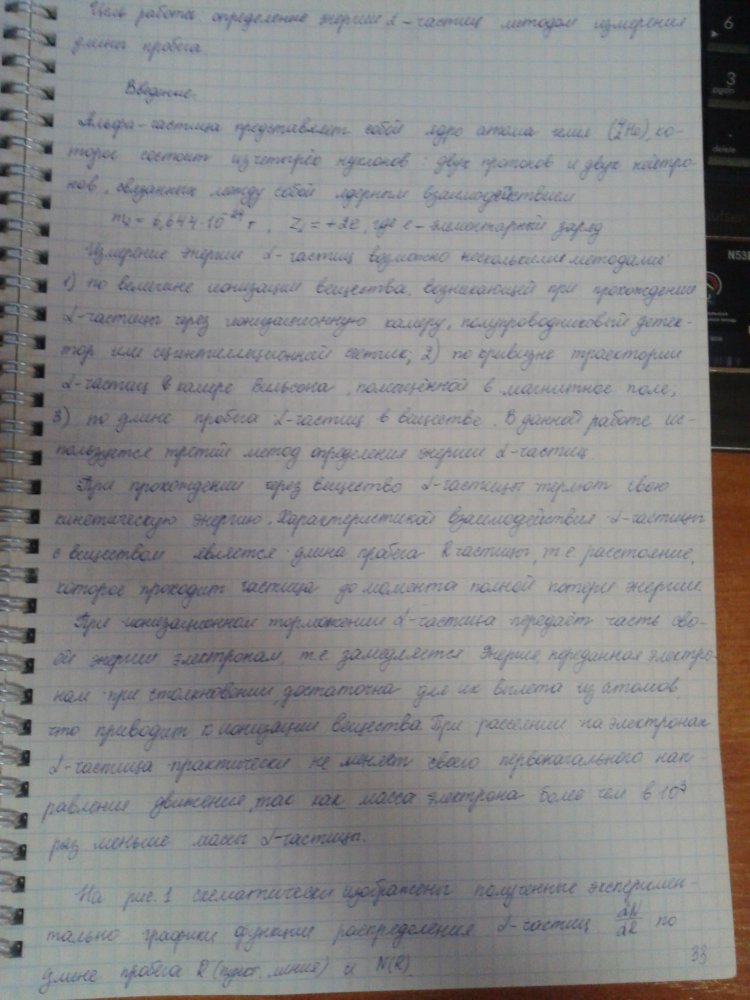 Цель работы определение энергии α-частиц методом измерения
длины пробега
Введение.
Альфа-частица представляет собой ядро атома гелия (⁴₂He), ко-
торое состоит из четырёх нуклонов: двух протонов и двух нейтро-
нов, связанных между собой ядерным взаимодействием
mα = 6,644·10⁻²⁴ г, Zα = +2e, где e - элементарный заряд
Измерение энергии α-частиц возможно несколькими методами:
1) по величине ионизации вещества, возникающей при прохождении
α-частицы через ионизационную камеру, полупроводниковый детек-
тор или сцинтилляционный счетчик; 2) по кривизне траектории
α-частиц в камере Вильсона, помещённой в магнитное поле;
3) по длине пробега α-частиц в веществе. В данной работе ис-
пользуется третий метод определения энергии α-частиц.
При прохождении через вещество α-частицы теряют свою
кинетическую энергию. Характеристикой взаимодействия α-частицы
с веществом является длина пробега R частицы, т.е расстояние,
которое проходит частица до момента полной потери энергии
При ионизационном торможении α-частица передаёт часть сво-
ей энергии электронам, т.е замедляется Энергия, переданная электро-
нам при столкновении, достаточна для их вылета из атомов,
что приводит к ионизации вещества При рассеянии на электронах
α-частица практически не меняет своего первоначального нап-
равления движения, так как масса электрона более чем в 10³
раз меньше массы α-частицы.
На рис. 1 схематически изображены полученные эксперимен-
тально графики функции распределения α-частиц dN/dR по
длине пробега R (пункт. линия) и N(R)
33
6
3
pgdn
N53